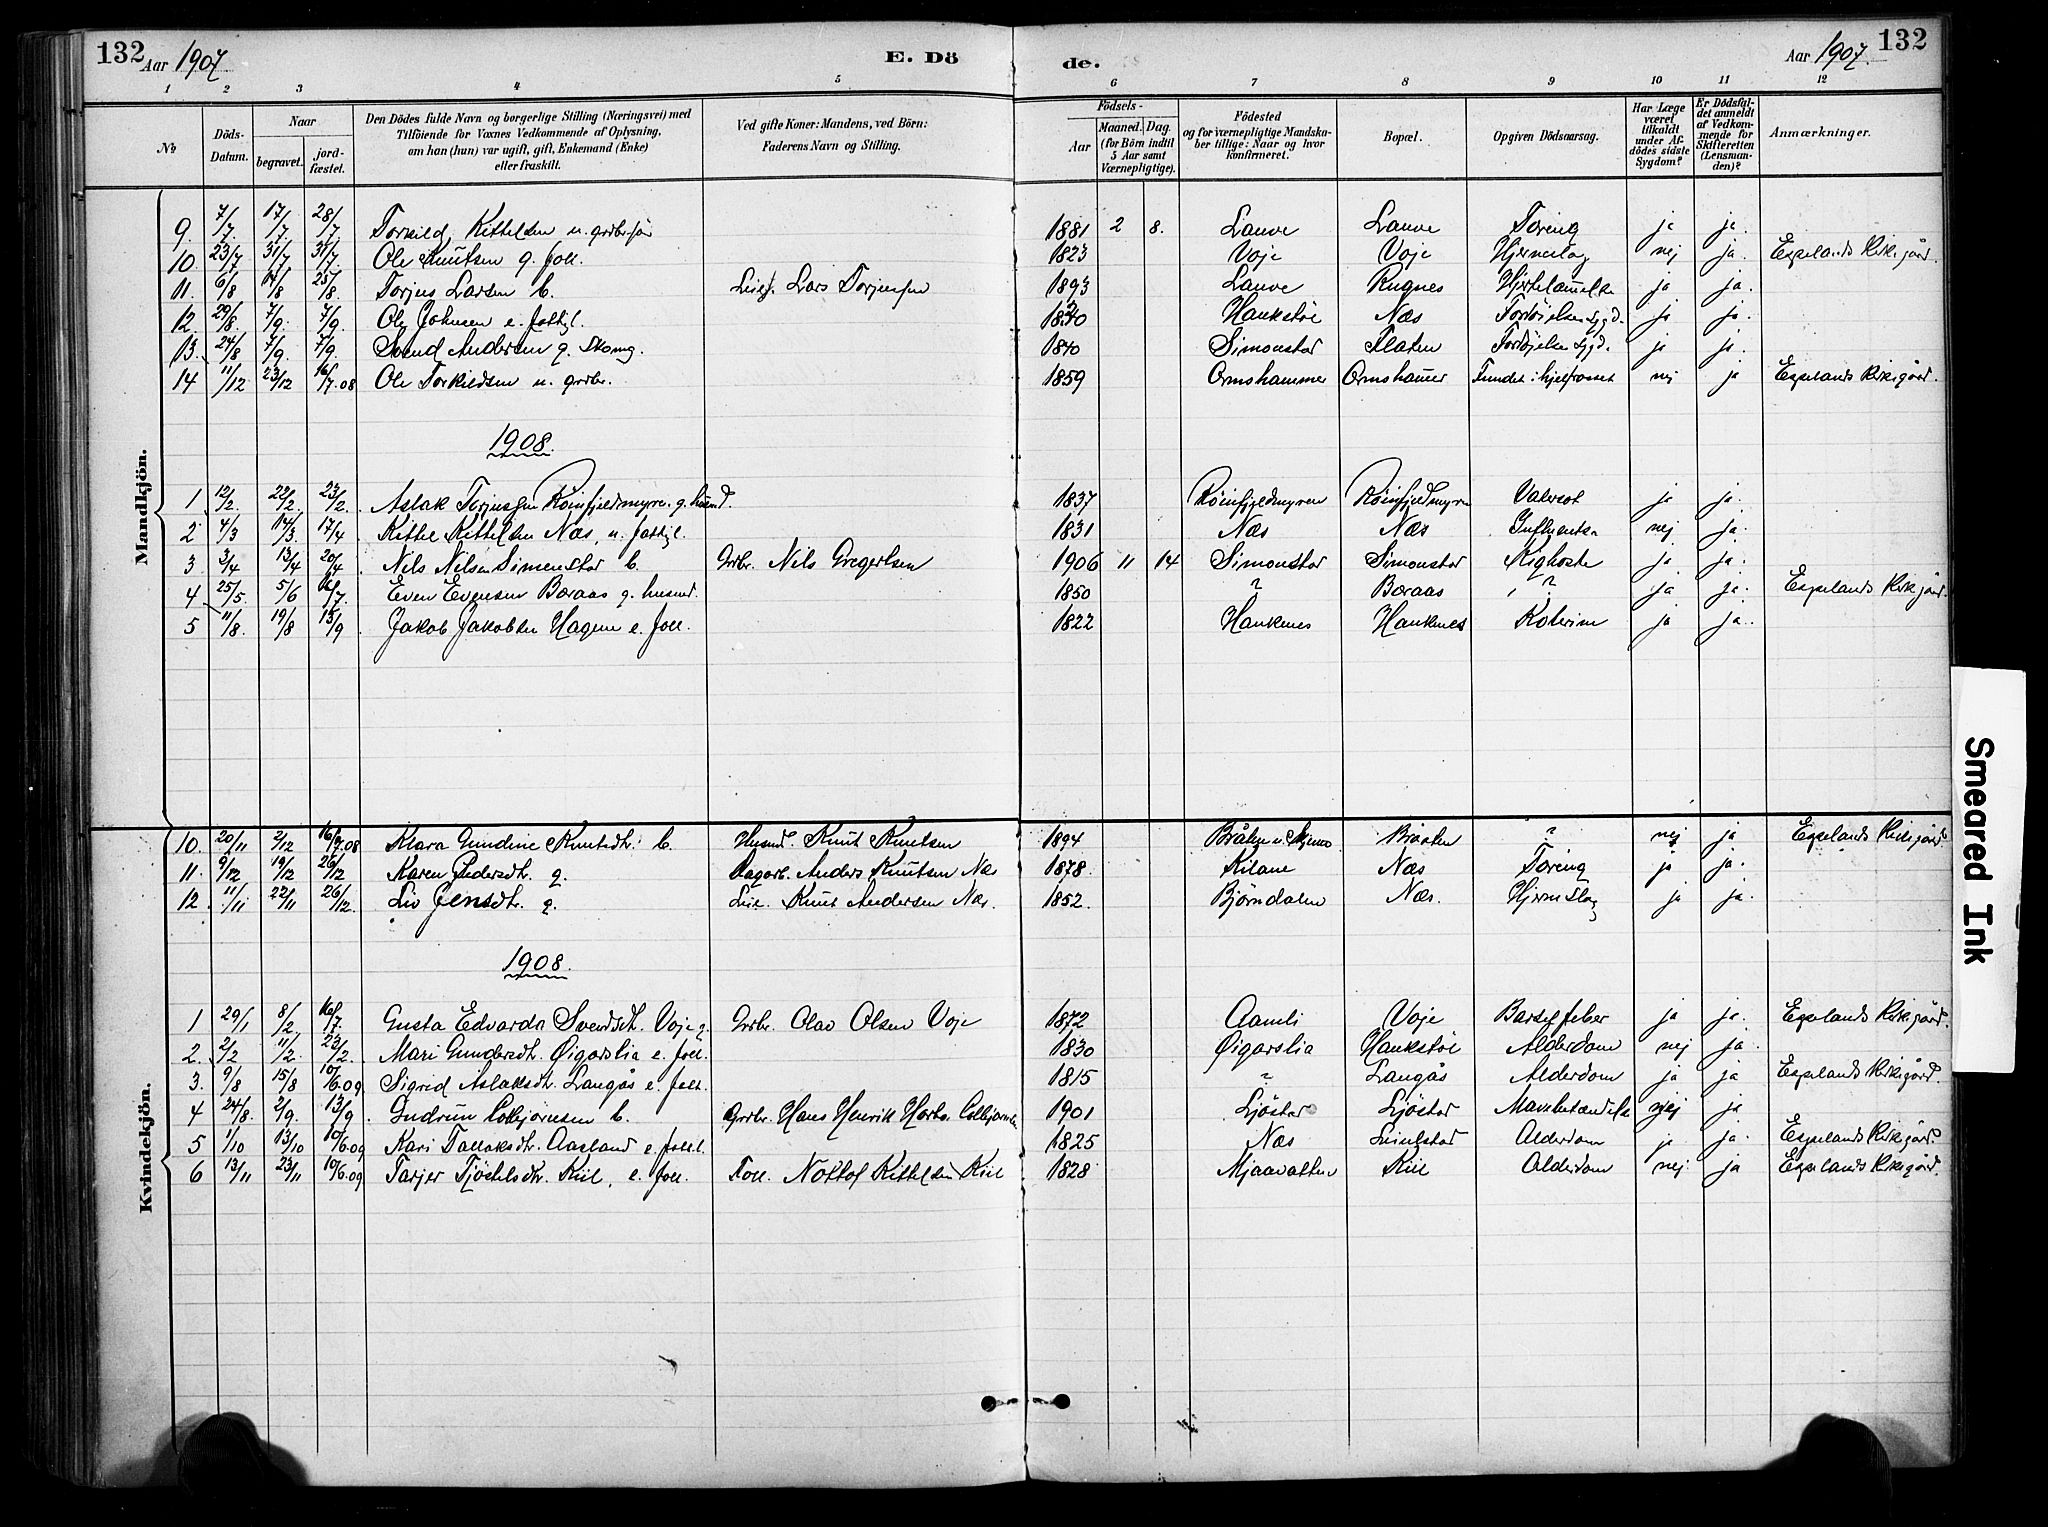 132 Aar 1907 E. Dö de. Aar 1907. 132
1 2 3 4 5 6 7 8 9 10 11 12
№ Döds-Datum. Naar begravet. jordfæstet. Den Dödes fulde Navn og borgerlige Stilling (Næringsvei) med Tilföiende for Voxnes Vedkommende af Oplysning, om han (hun) var ugift, gift, Enkemand (Enke) eller fraskilt. Ved gifte Koner: Mandens, ved Börn: Faderens Navn og Stilling. Födsels- Aar Maaned. Dag. (for Börn indtil 5 Aar samt Værnepligtige). Födested og for værnepligtige Mandskaber tillige: Naar og hvor konfirmeret. Bopæl. Opgiven Dödsaarsag. Har Læge været tilkaldt under Afdödes sidste Sygdom? Er Dödsfaldet anmeldt af Vedkommende for Skifteretten (Lensmanden)? Anmærkninger.
Mandkjön.
9. 7/7. 17/7. 28/7 Torkild Kittelsen u. grdbr.sön 1881 2 8. Lauve Lauve Tæring ja ja.
10. 23/7 31/7 31/7. Ole Knutsen g. foll. 1823 Voje Voje Hjerneslag nej ja. Espelands Kirkigård.
11. 6/8 14/8 25/8. Torjus Larsen b. Leil. Lars Torjussen 1893 Lauve Rugnes Hjertelammelse ja ja.
12. 29/8. 7/9. 7/9. Ole Johnsen e. fattigl. Haukstøl Næs ja ja.
13. 24/8 7/9. 7/9. Svend Andersen g. Skomg. 1840 Simonstad Flaten ja ja.
14 11/12 23/12 16/7.08 Ole Torkildsen u. grdbr. 1859 Ormshammer Ormshammer Fundet ihjelfrosset nej ja Espelands Kirkigård.
1908.
1 12/2. 22/2. 23/2. Aslak Torjussen Röinfjeldmyren g. husmd. 1837 Röinfjeldmyren Röinfjeldmyren ja ja.
2 4/3 14/3. 17/4 Kittel Kittelsen Næs, u. fattigl. 1831 Næs Næs Influentsa nej ja.
3 3/4 13/4 20/4 Nils Nilsen Simonstad b. Grdbr. Nils Gregertsen 1906 11 14 Simonstad Simonstad Kighoste ja ja.
4 25/5 5/6 16/7. Even Evensen Boraas g. husmd. 1850 ? Boraas ? ja ja. Espelands Kirkigård.
5 11/8. 19/8 15/9 Jakob Jakobsen Hagen e. foll. 1822 Hauknes Hauknes Kolerine ja ja.
Kvindekjön.
10. 20/11 2/12 16/7.08 Klara Gundine Knutsdtr. b. Husmd. Knut Knutsen 1894 Bråten ? nej ja Espelands Kirkigård
11. 9/12 19/12 26/12 Karen Pedersdtr. g. Dagarb. Anders Knutsen Næs 1878. Kilane Næs Tæring ja ja.
12. 11/11 22/11 26/12. Liv Jensdtr. g. Leil. Knut Andersen Næs. 1852. Bjørndalen Næs. Hjerneslag ja ja.
1908.
1 29/1 8/2 16/7. Gusta Edvarda Svendsdtr. Voje g. Grdbr. Olav Olsen Voje 1872 Aamli Voje Barselfeber ja ja. Espelands Kirkigård.
2. 2/2 11/2. 23/2. Mari Gundersdtr. Øigarslia e. foll. 1830 Øigarslia Haukstöl Alderdom nej ja.
3. 9/8 15/8 10/6.09 Sigrid Aslaksdtr. Langås e. foll. 1815 ? Langås Alderdom ja ja Espelands Kirkigård.
4 24/8. 2/9. 13/9 Gudrun Colbjörnsen b. Grdbr. Hans Henrik Colbjörnsen 1901 Ljöstad Ljöstad nej ja
5 1/10 13/10 10/6.09 Kari Tallaksdtr. Aasland e. foll. 1825 Næs Alderdom ja ja. Espelands Kirkigård
6 13/11 23/11 10/6.09 Tarjer Tjöstelsdtr. Kiil, e. foll. Foll. Nottof Kittelsen Kiil 1828 Mjaavatten Kiil Alderdom nej ja Espelands Kirkigård.
Smeared Ink